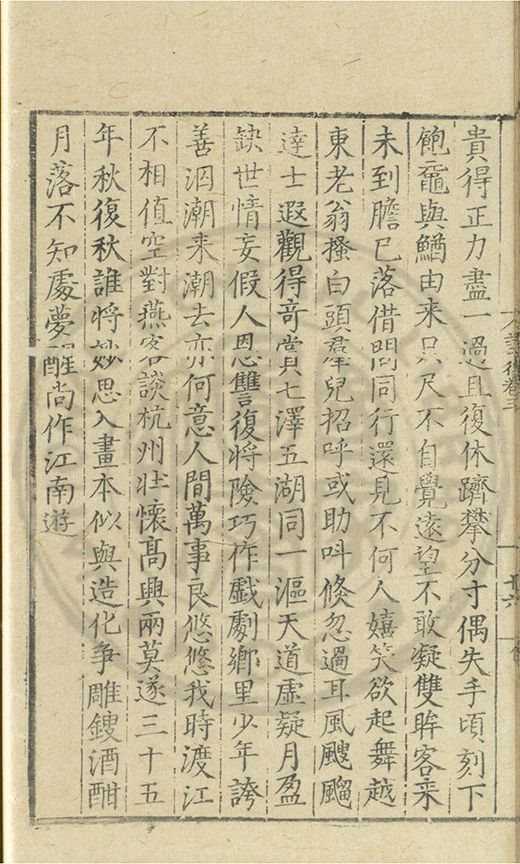 貴得正力盡一過且復休躋攀分寸偶失手頃刻下
飽黿與鰌由来只尺不自覺遠望不敢凝雙眸客来
未到膽已落借問同行還見不何人嬉笑欲起舞越
東老翁搔白頭羣兒招呼或助呌倐忽過耳風颼飀
達士遐觀得竒賞七澤五湖同一漚天道虚疑月盈
缺世情妄假人恩讐復將險巧作戯劇鄉里少年誇
善泅潮来潮去亦何意人間萬事良悠悠我時渡江
不相值空對燕客談杭州壮懷髙興兩莫遂三十五
年秋復秋誰將妙思入畫本似與造化争雕鎪酒酣
月落不知處夢醒尚作江南遊